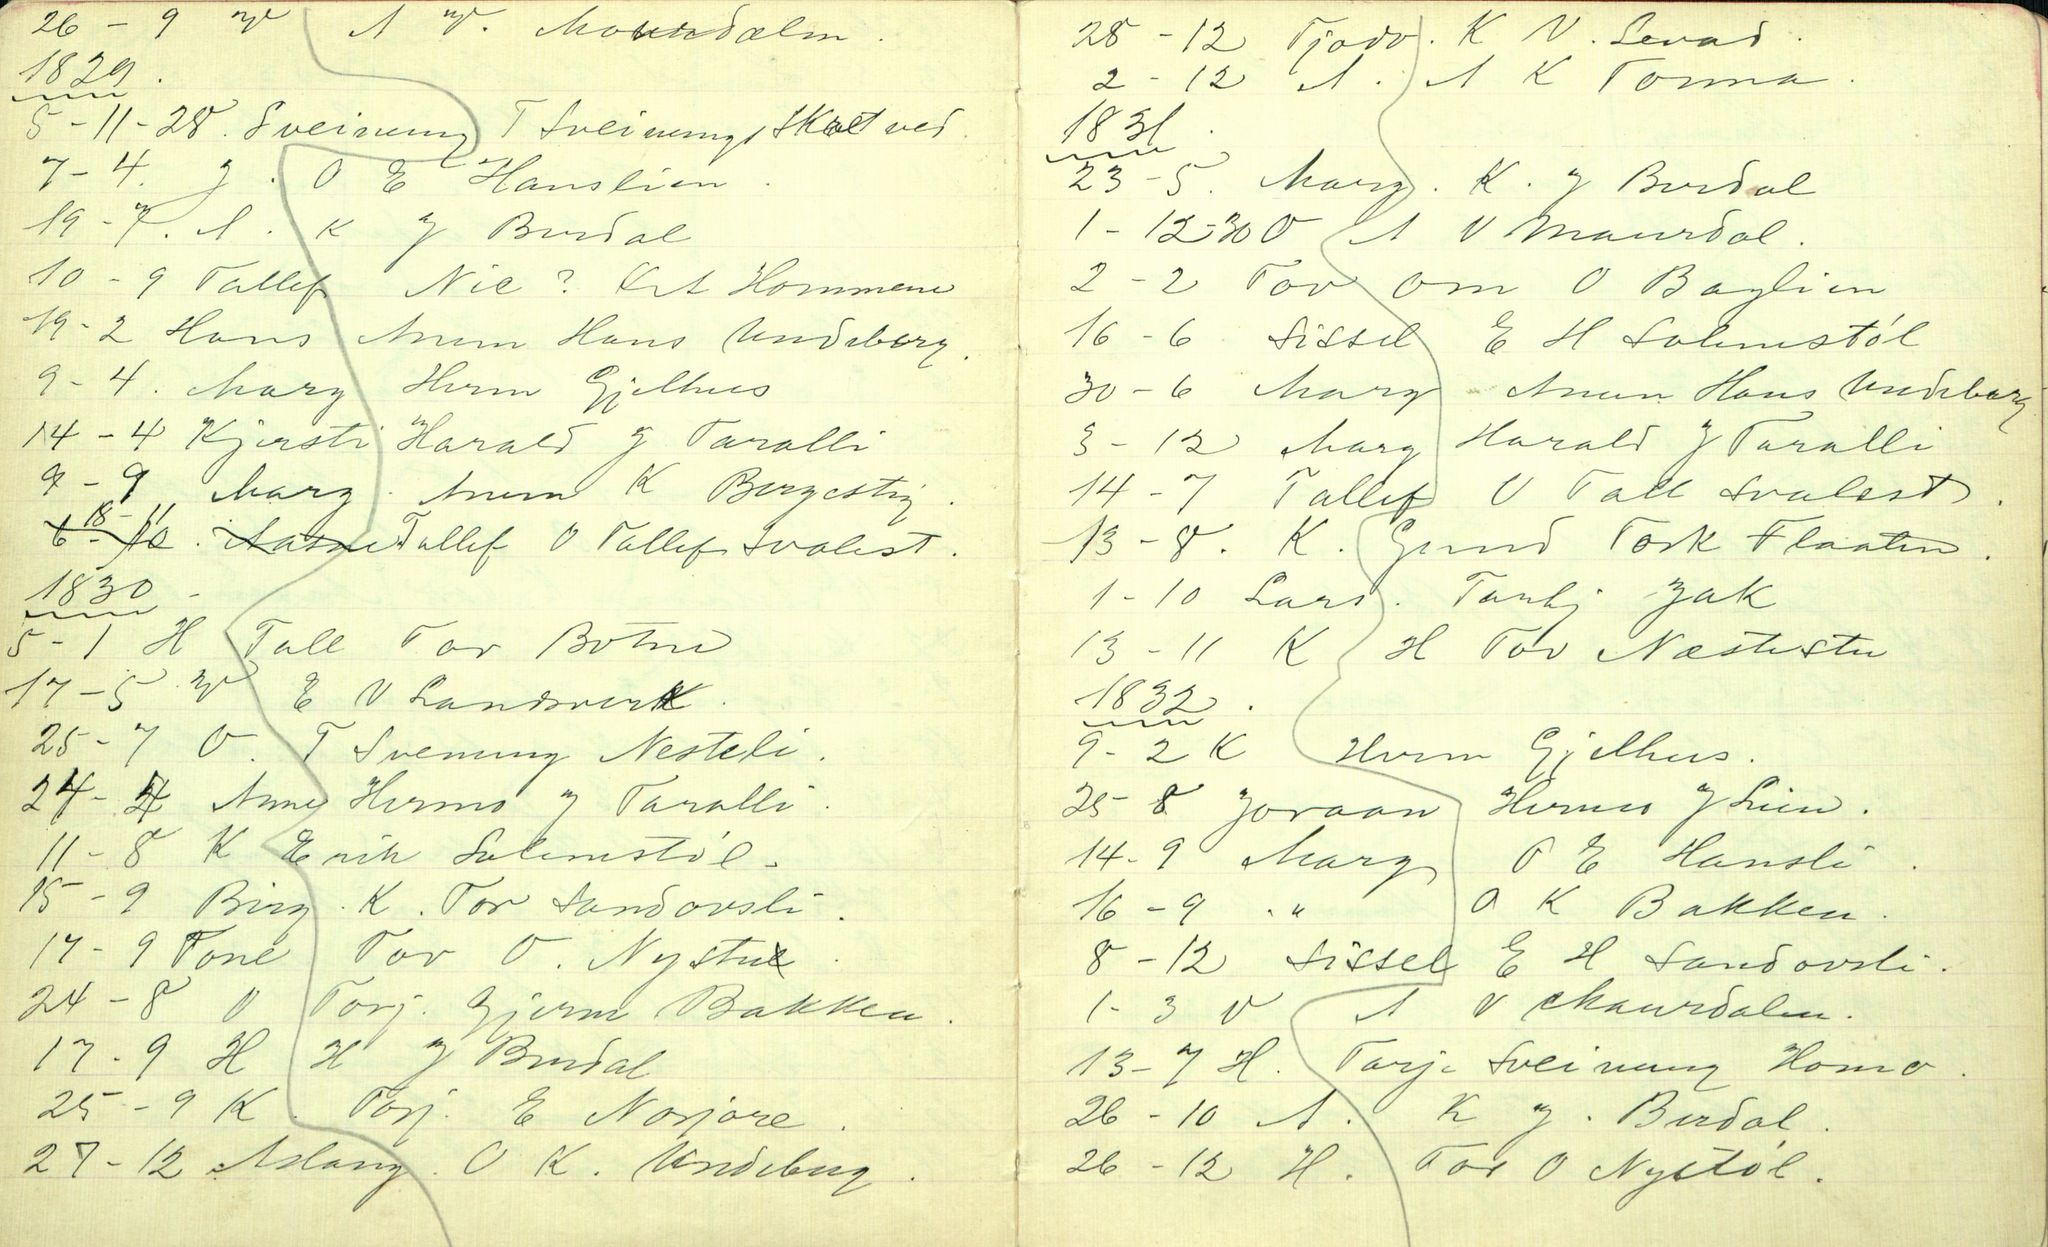 26 - 9 V A V. Mourdalen.
1829.
5-11-28. Sveinung T Sveinungs Skretved.
7-4. J. O E Hanslien.
19-7. A. K J Burdal
10-9 Tallef Nic? Krt Hommene
19-2 Hans Anun Hans Undeberg.
9-4. Marg Herm Gjelhus
14-4 Kjersti Harald J Taralli
9-9 Marg. Anun K Bergestig.
6-10. Aasne 18-11 Tallef O Tallef Svalest.
1830
5-1 H Tall Tor Botne
17-5 V E V Landsverk.
25-7 O. T Svenung Nesteli.
24-4 Anne Hermo J Taralli.
11-8 K Erik Solemstól.
15-9 Birg. K. Tor Sandovsli.
17-9 Tone Tor O. Nystue.
24-8 O Torj. Gjerm Bakken.
17-9 H H J Burdal
25-9 K. Torj. E Norjore.
27-12 Aslaug. O K. Undeberg.
28-12 Tjodv. K V. Levad.
2-12 A. A K Tonna.
1831.
23-5. Marg. K. J Burdal
1-12-30 O A V Maurdal.
2-2 Tov Om O Baglien
16-6 Sissel E H Solemstól
30-6 Marg Anun Hans Undeberg
3-12 Marg Harald J Taralli
14-7 Tallef O Tall Svalest.
13-8. K. Gund Tork Flaaten.
1-10 Lars. Tarkj Jak
13-11 K H Tov Nestestu
1832.
9-2 K Herm Gjelhus.
25-8 Joraan Hermo J Lien.
14-9 Marg O E Hansli.
16-9 " O K Bakken.
8-12 Sissel E H Sandovsli.
1-3 V A V Maurdalen.
13-7 H. Tarje Sveinung Homo.
26-10 A. K J. Burdal.
26-12 H. Tor O Nystól.